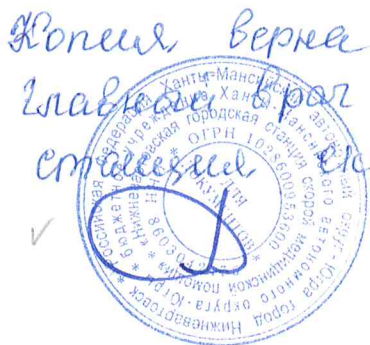 Копия верна
Главный врач
станция ск
Российская Федерация Ханты-Мансийский автономный округ-Югра город Нижневартовск
бюджетное учреждение Ханты-Мансийского автономного округа-Югры
Нижневартовская городская станция скорой медицинской помощи
ОГРН